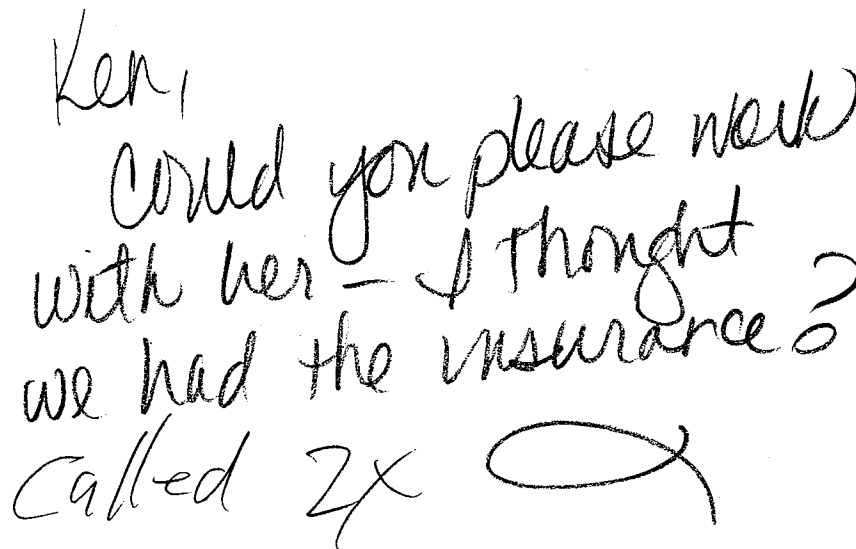 Ken,
Could you please work
with her – I thought
we had the insurance?
Called 2x